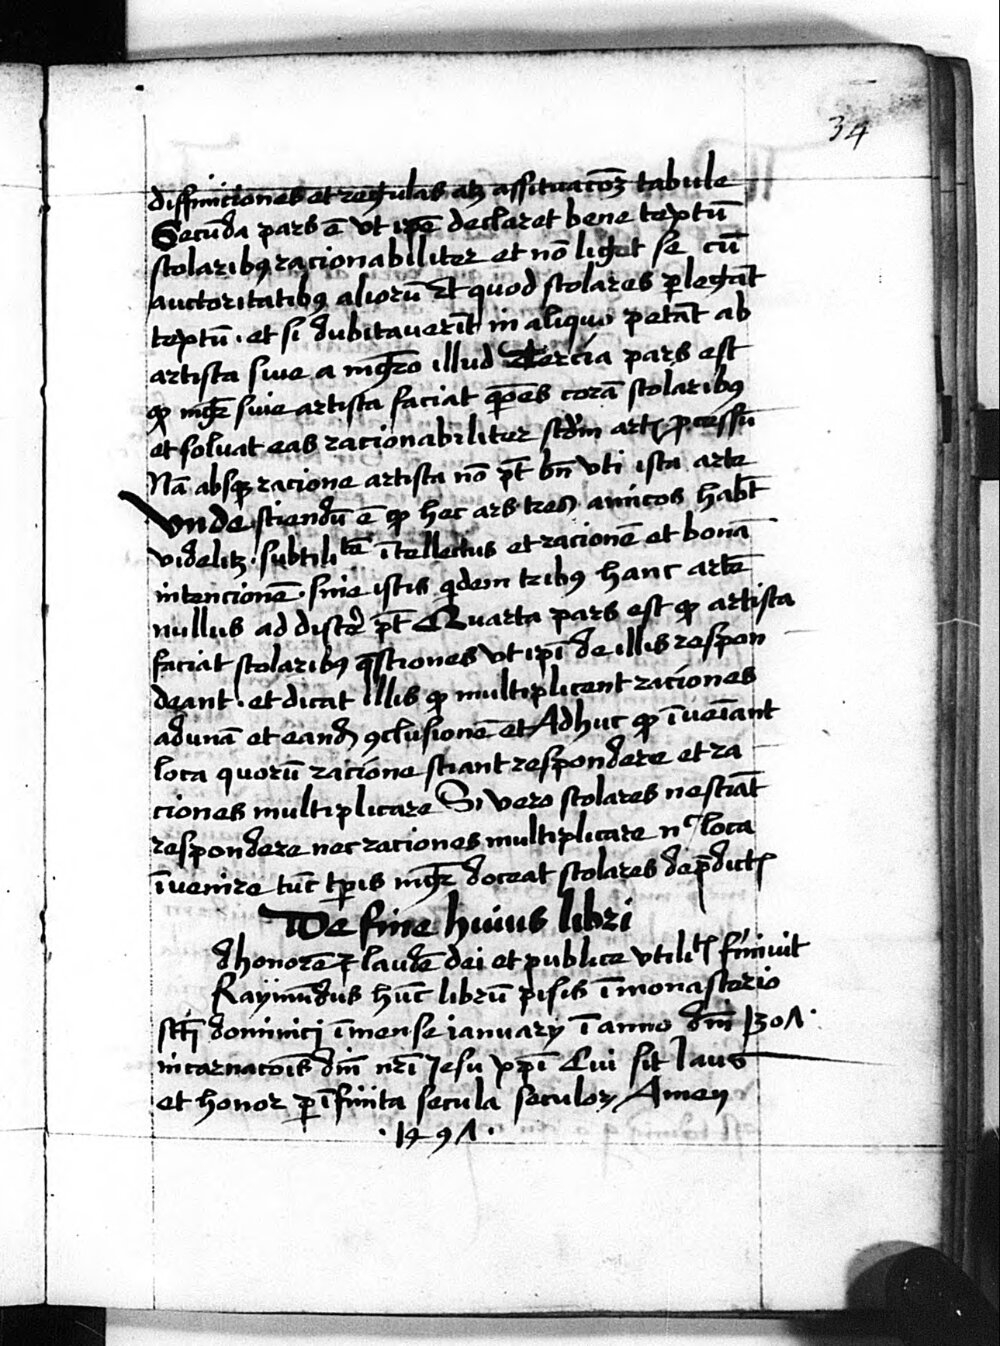 34
diffiniciones et regulas atqꝫ assituacōꝫ tabule
Secūda pars ē vt ip̄e declaret bene textū
scolaribꝯ racionabiliter et nō liget se cū
auctoritatibꝯ aliorū Et quod scolares ꝑlegāt
textū · et si dubitauerīt in aliquo petāt ab
artista siue a mgr̄o illud Tercia pars est
ꝙ mgr̄ siue artista faciat q̄ones corā scolaribꝯ
et soluat eas racionabiliter scd̄m artꝭ ꝓcessū
Nā absqꝫ racione artista nō pt̄ bn̄ vti ista arte
Vnde sciendū ē ꝙ hec ars tres amicos habt̄
videlitꝫ · subtilitē ītellectus et racionē et bonā
intencionē · sine istis qͥdem tribꝯ hanc artē
nullus addiscē pt̄ Quarta pars est ꝙ artista
faciat scolaribꝯ q̄stiones vt ip̄i de illis respon
deant · et dicat illis ꝙ multiplicent raciones
ad unā et eandē ꝯclusionē et Adhuc ꝙ īueīant
loca quorū racione sciant respondere et ra
ciones multiplicare Si vero scolares nesciāt
respondere nec raciones multiplicare nͨ loca
īuenire tūc tp̄is mgr̄ doceat scolares de p̄dictꝭ
De fine huius libri
Ad honorē ⁊ laudē dei et publice vtilitꝭ finiuit
Raymūdus hūc librū pisis ī monasterio
scti dominici ī mense ianuarij ī anno dn̄i 1307 ·
incarnacōis dn̄i nr̄i Jesu xp̄i Cui sit laus
et honor ꝑ īfinita secula seculoꝝ Amen
· 1497 ·